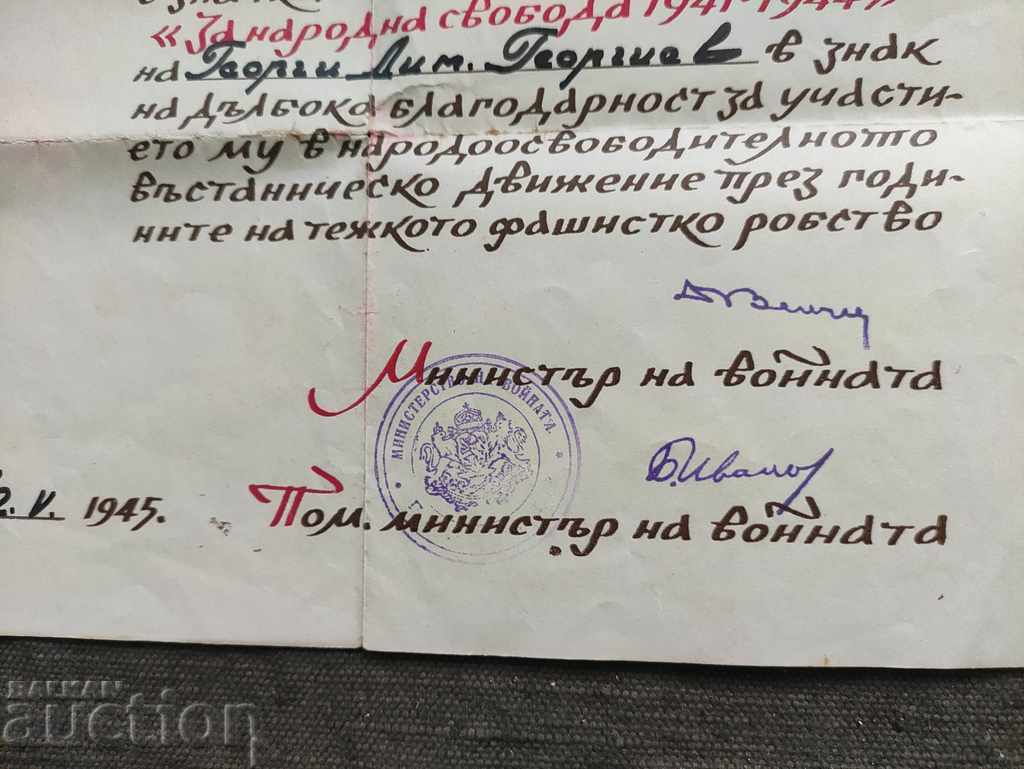 «За народна свобода 1941-1944»
на Георги Дим. Георгиев в знак
на дълбока благодарност за участи-
ето му в народоосвободителното
въстаническо движение през годи-
ните на тежкото фашистко робство
Министър на войната
МИНИСТЕРСТВО НА ВОЙНАТА
Б. Иванов
V. 1945. Пом. министър на войната
BALKAN
auction